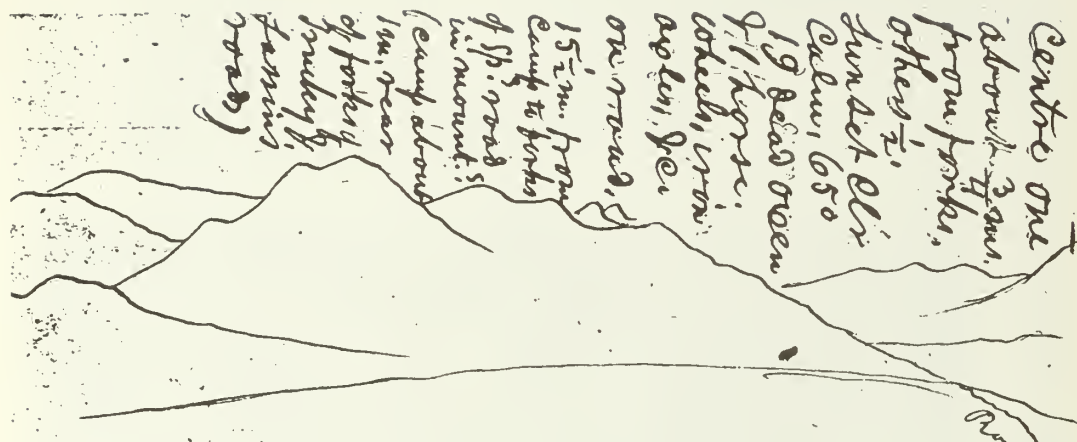 Centre one
about 3/4 m.
from forks,
others 1/2.
Sunset Cl'r
Calm, 65°
19 dead oxen
& 1 horse.
wheels, iron
axles, &c.
on road.
15 1/2 m. from
Camp to forks
of Sp. road
in mount.s
(camp about
1 m. rear
of forks of
road)